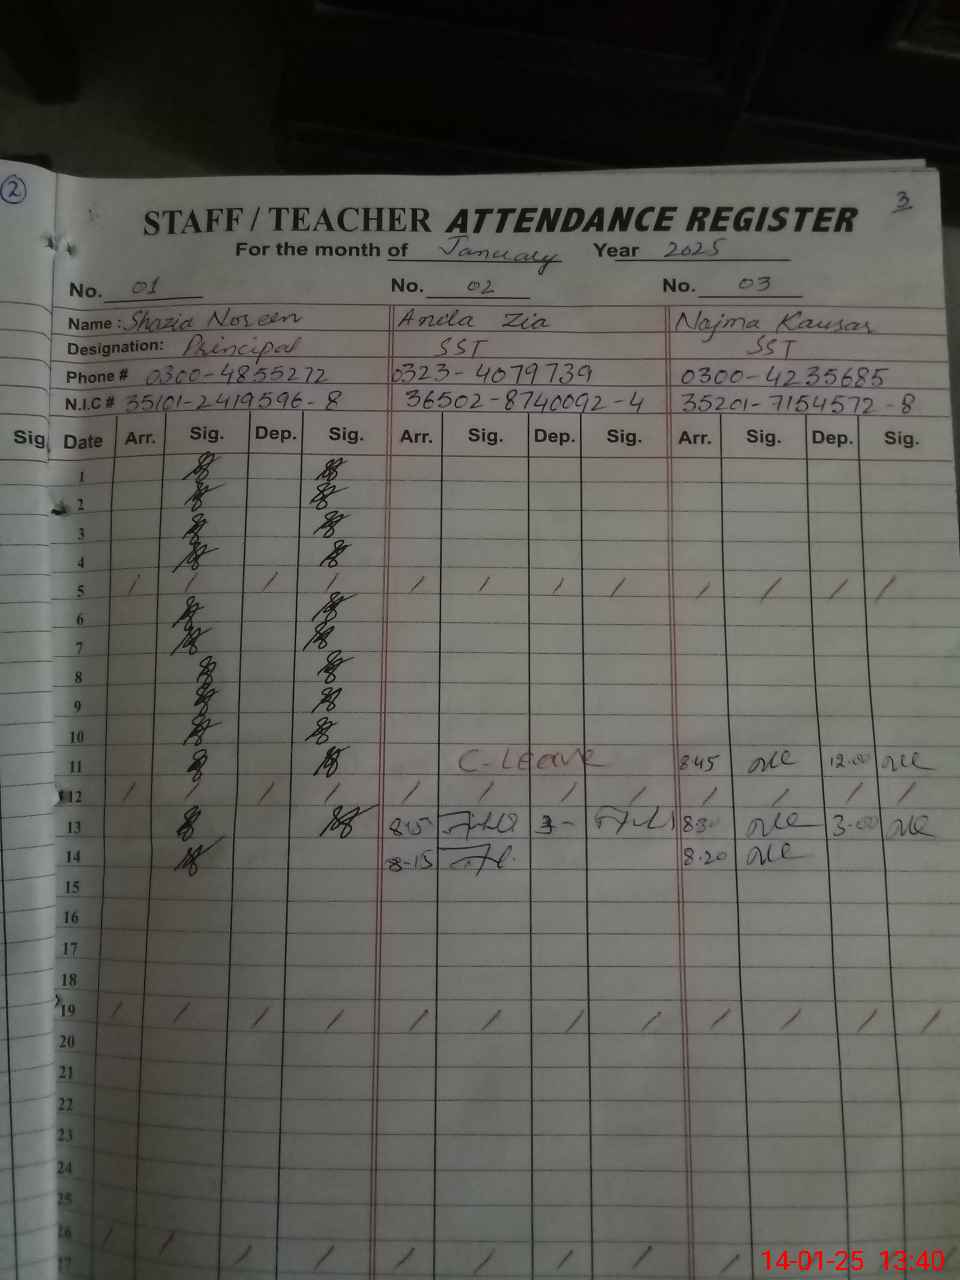 2
3
STAFF / TEACHER ATTENDANCE REGISTER
For the month of January Year 2025
No. 01 No. 02 No. 03
Name : Shazia Noreen Anila Zia Najma Kausar
Designation: Principal SST SST
Phone # 0300-4855272 0323-4079739 0300-4235685
N.I.C # 35101-2419596-8 36502-8740092-4 35201-7154572-8
Sig. Date Arr. Sig. Dep. Sig. Arr. Sig. Dep. Sig. Arr. Sig. Dep. Sig.
1
2
3
4
5 / / / / / / / / / / / /
6
7
8
9
10
11 C-Leave 8:45 12.00
12 / / / / / / / / / / / /
13 3- 8:30 3.00
14 8-15 8.20
15
16
17
18
19 / / / / / / / / / / / /
20
21
22
23
24
25
26
27
14-01-25 13:40